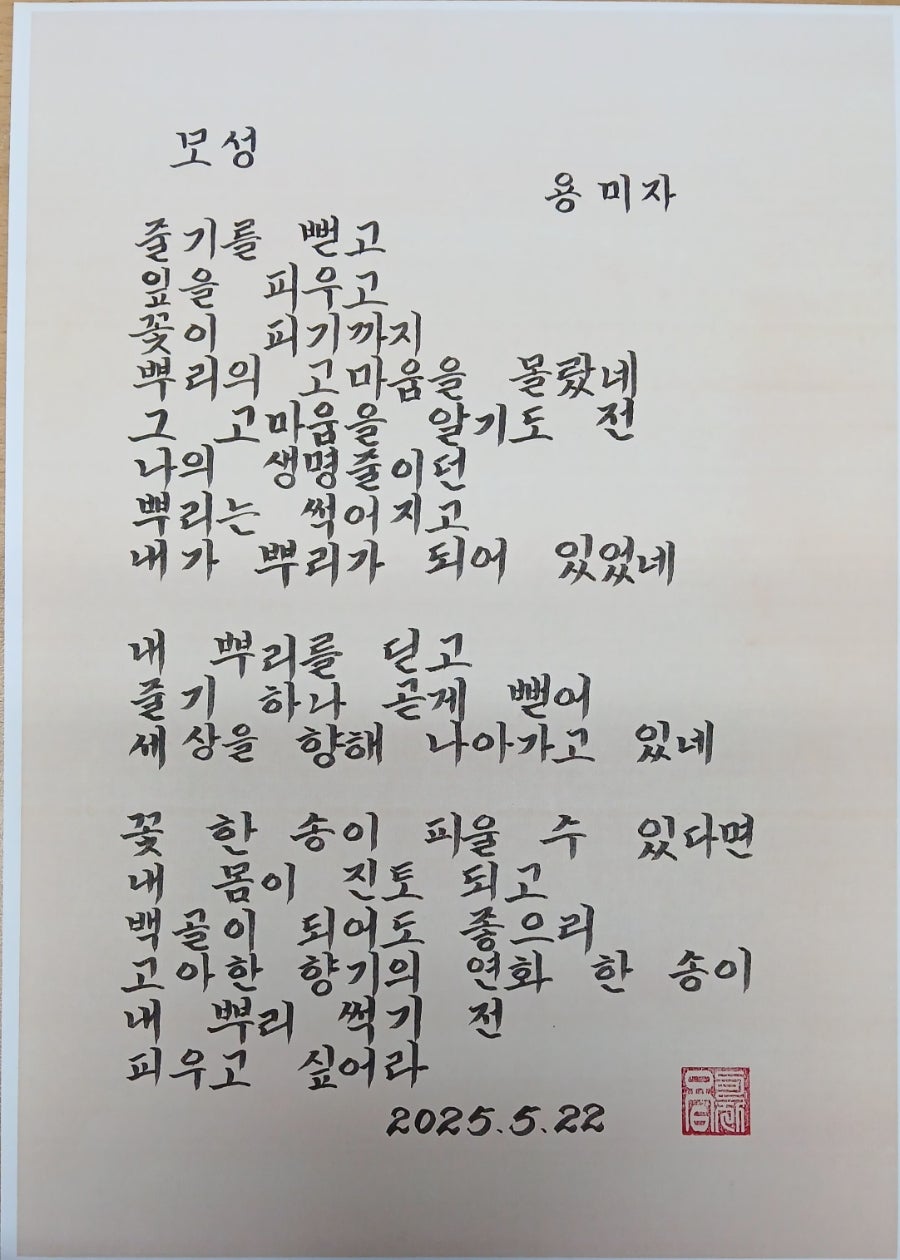 모성
용미자
줄기를 뻗고
잎을 피우고
꽃이 피기까지
뿌리의 고마움을 몰랐네
그 고마움을 알기도 전
나의 생명줄이던
뿌리는 썩어지고
내가 뿌리가 되어 있었네
내 뿌리를 딛고
줄기 하나 곧게 뻗어
세상을 향해 나아가고 있네
꽃 한 송이 피울 수 있다면
내 몸이 진토 되고
백골이 되어도 좋으리
고아한 향기의 연화 한 송이
내 뿌리 썩기 전
피우고 싶어라
2025.5.22